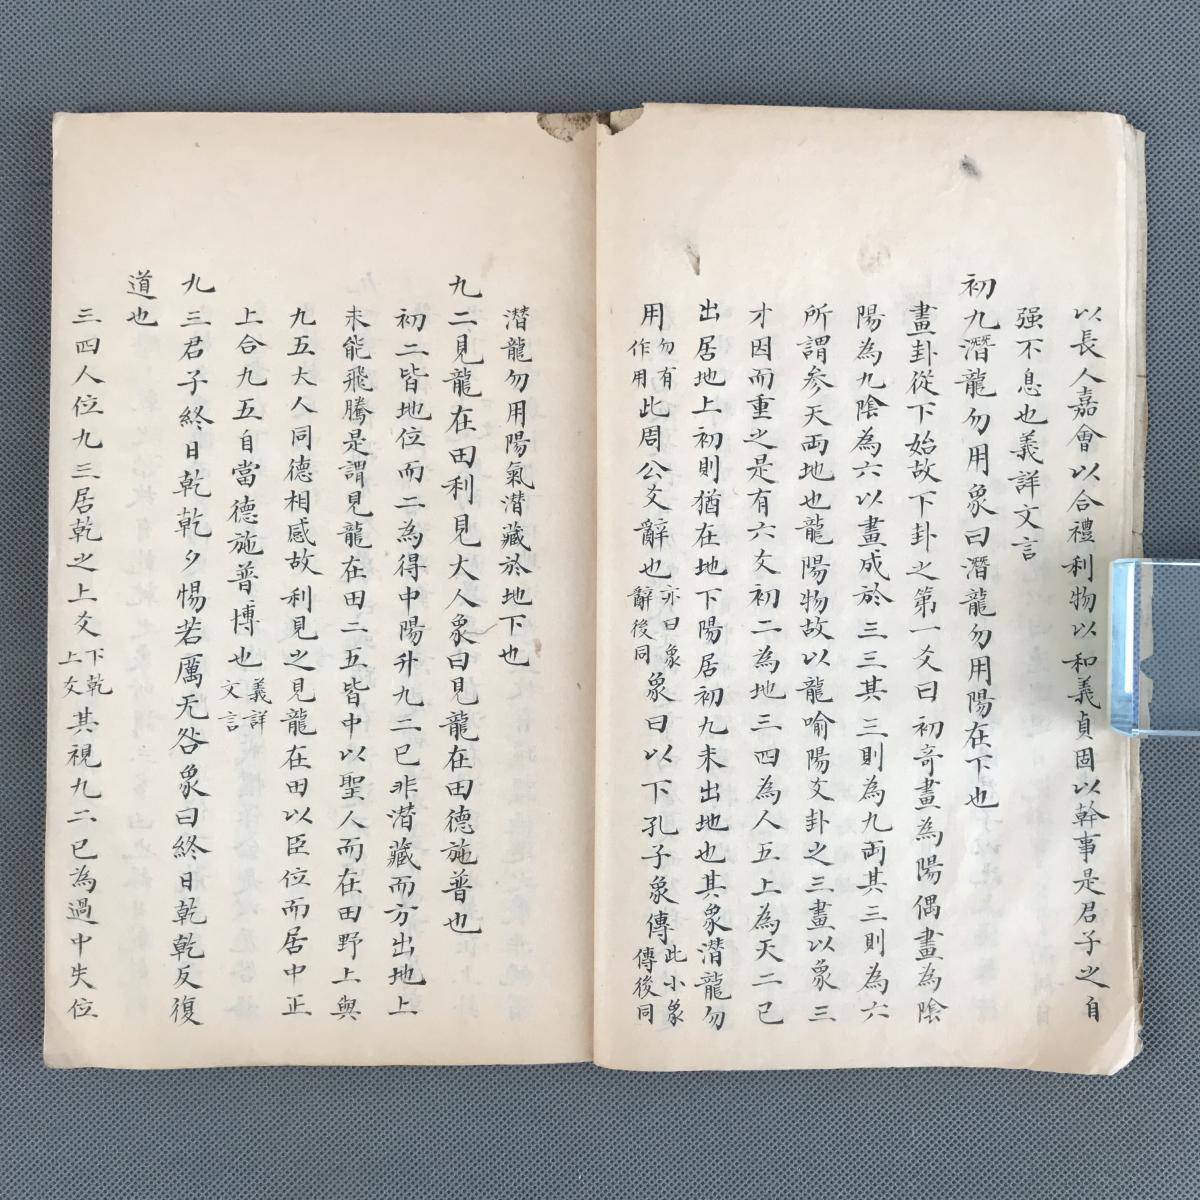 以長人嘉會以合禮利物以和義貞固以幹事是君子之自
强不息也義詳文言
初九潛龍勿用象曰潛龍勿用陽在下也
畫卦從下始故下卦之第一爻曰初奇畫為陽偶畫為陰
陽為九陰為六以畫成於三三其三則為九両其三則為六
所謂参天両地也龍陽物故以龍喻陽爻卦之三畫以象三
才因而重之是有六爻初二為地三四為人五上為天二已
出居地上初則猶在地下陽居初九未出地也其象潛龍勿
用勿有作用此周公爻辭也亦曰象辭後同象曰以下孔子象傳此小象傳後同
潛龍勿用陽氣潛藏於地下也
九二見龍在田利見大人象曰見龍在田德施普也
初二皆地位而二為得中陽升九二已非潛藏而方出地上
未能飛騰是謂見龍在田二五皆中以聖人而在田野上與
九五大人同德相感故利見之見龍在田以臣位而居中正
上合九五自當德施普博也義詳文言
九三君子終日乾乾夕惕若厲无咎象曰終日乾乾反復
道也
三四人位九三居乾之上爻下乾上爻其視九二已為過中失位